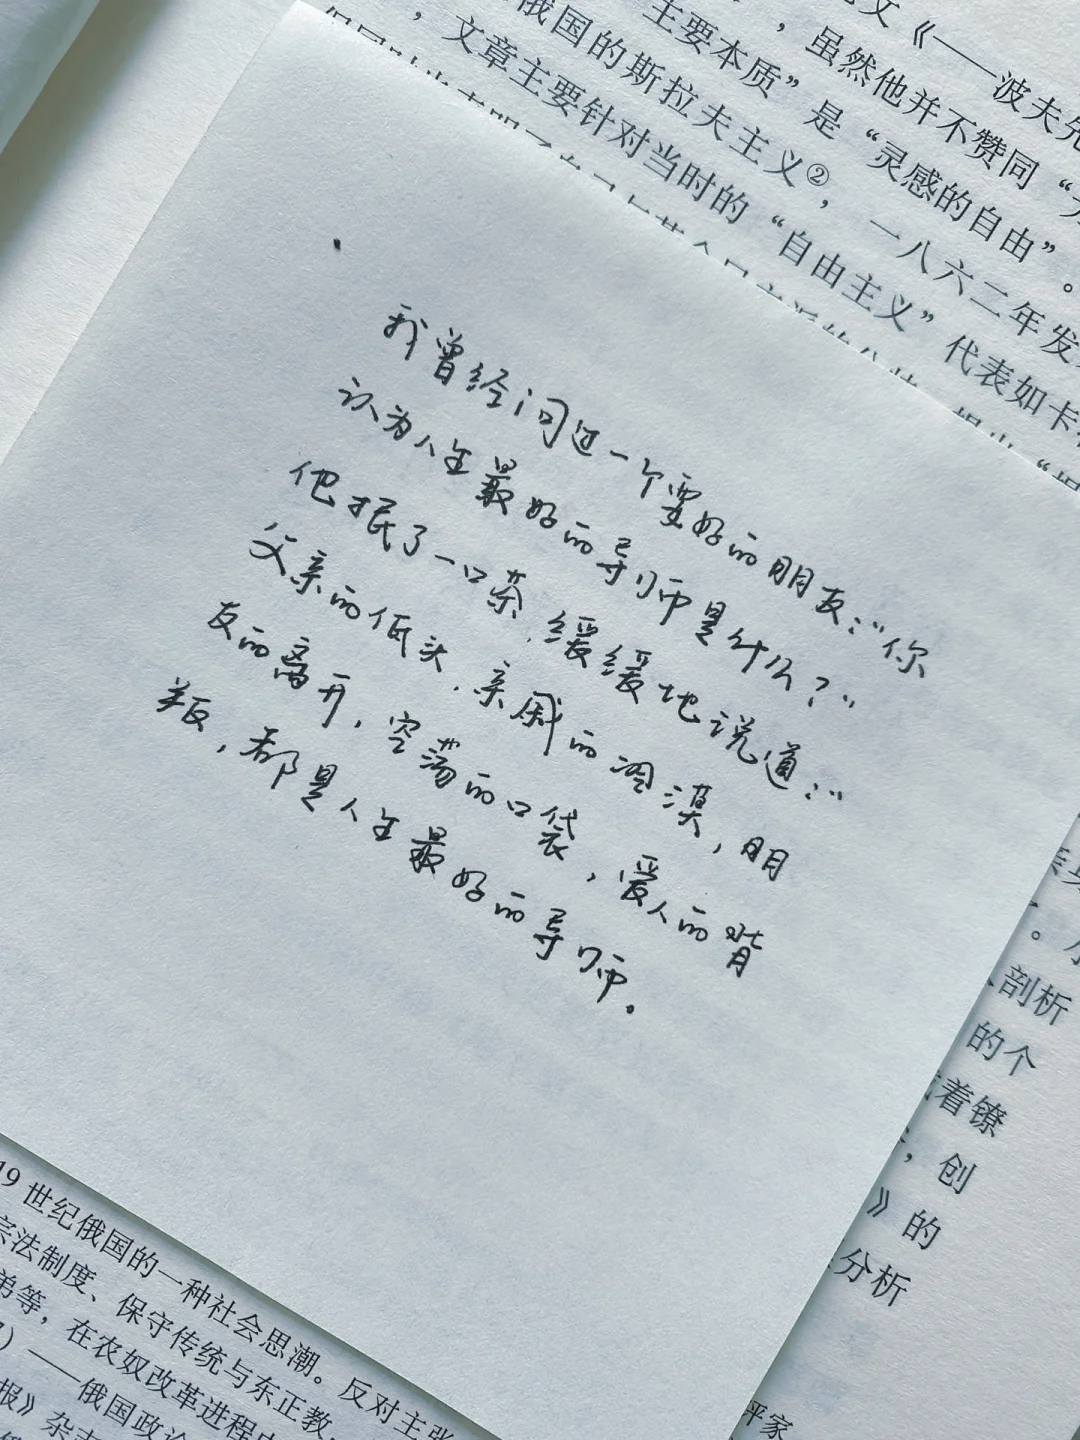 文《——波夫先
，虽然他并不赞同“
主要本质”是“灵感的自由”。
俄国的斯拉夫主义②，一八六二年发
，文章主要针对当时的“自由主义”代表如卡
我曾经问过一个要好的朋友：“你
认为人生最好的导师是什么？”
他抿了一口茶，缓缓地说道：“
父亲的低头，亲戚的冷漠，朋
友的离开，空荡的口袋，爱人的背
叛，都是人生最好的导师。
剖析
的个
着镣
，创
》的
分析
评家
19世纪俄国的一种社会思潮。反对主张
宗法制度、保守传统与东正教，
弟等，在农奴改革进程中
）——俄国政论
报》杂志